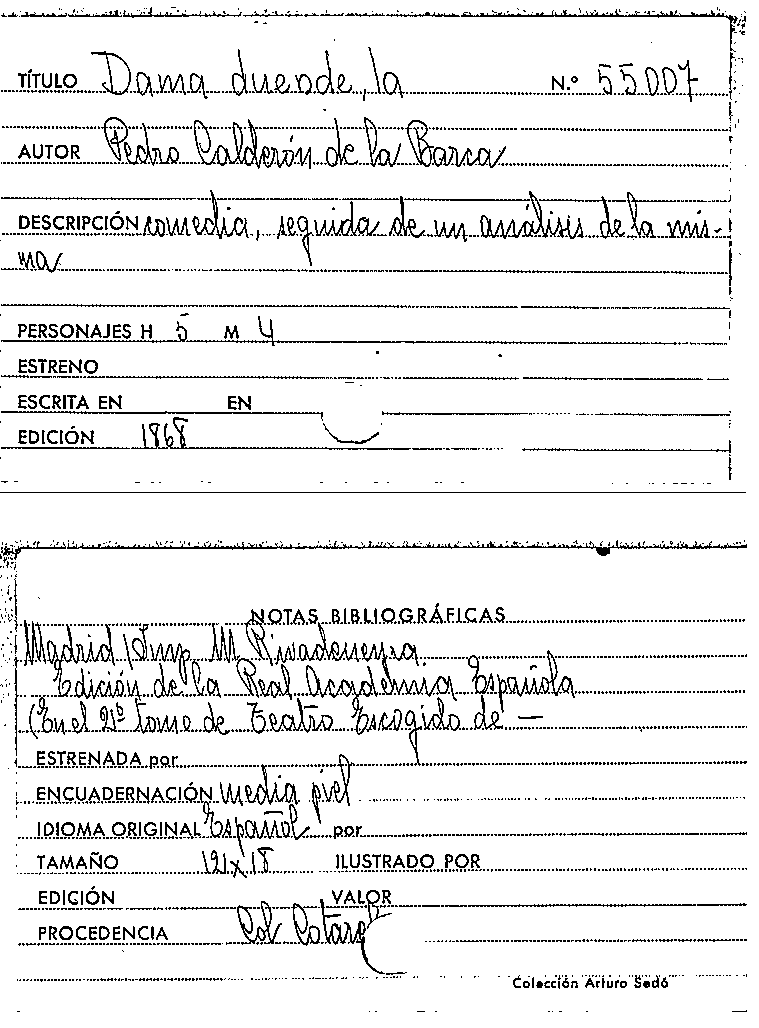 TÍTULO Dama duende, la N.º 55007
AUTOR Pedro Calderón de la Barca
DESCRIPCIÓN comedia, seguida de un análisis de la mis-
ma
PERSONAJES H 5 M 4
ESTRENO
ESCRITA EN EN
EDICIÓN 1868
NOTAS BIBLIOGRÁFICAS
Madrid / Imp. M Rivadeneyra
Edición de la Real Academia Española
(En el 2º tomo de Teatro Escogido de —
ESTRENADA por
ENCUADERNACIÓN media piel
IDIOMA ORIGINAL Español por
TAMAÑO ILUSTRADO POR
EDICIÓN VALOR
PROCEDENCIA Col
Colección Arturo Sedó